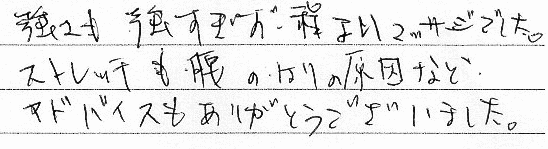 強さも強すぎず程よいマッサージでした。
ストレッチも腰のはりの原因など
アドバイスもありがとうございました。